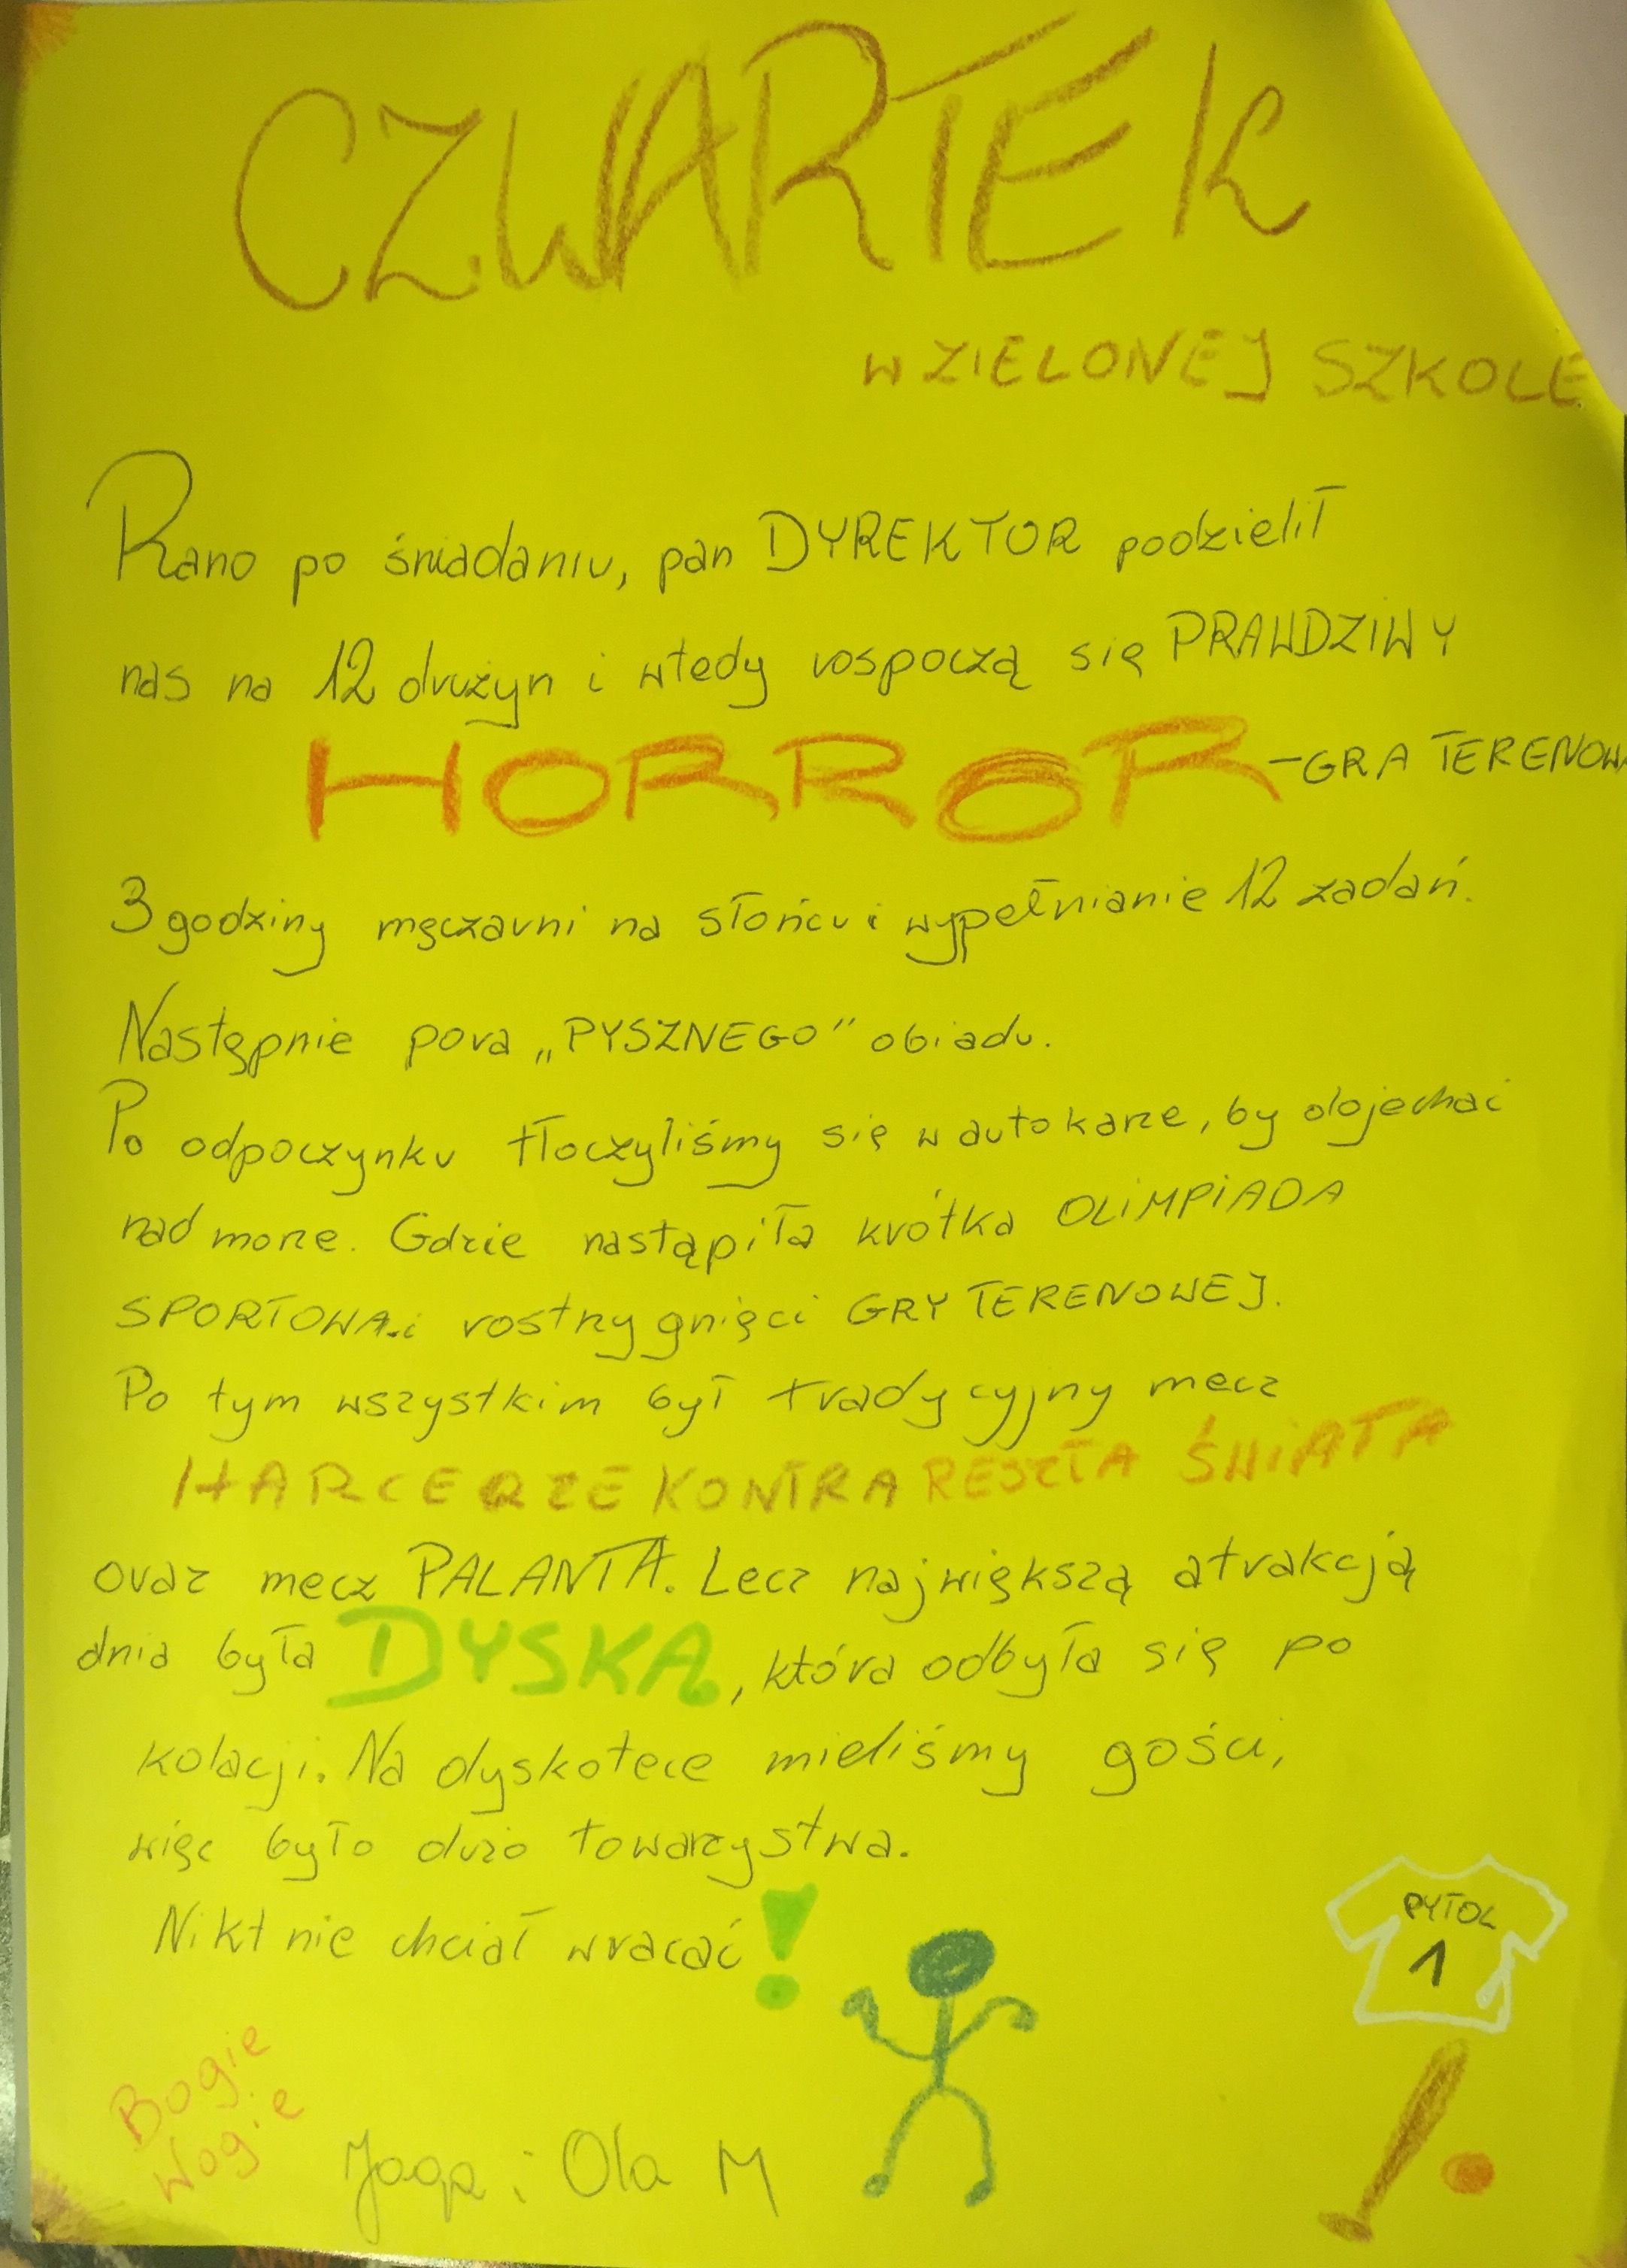 CZWARTEK
W ZIELONEJ SZKOLE
Rano po śniadaniu, pan DYREKTOR podzielił
nas na 12 drużyn i wtedy rospoczą się PRAWDZIWY
HORROR - GRA TERENOWA
3 godziny męczarni na słońcu i wypełnianie 12 zadań.
Następnie pora „PYSZNEGO" obiadu.
Po odpoczynku tłoczyliśmy się w autokarze, by dojechać
nad morze. Gdzie nastąpiła krótka OLIMPIADA
SPORTOWA i rostrzygnięci GRY TERENOWEJ.
Po tym wszystkim był tradycyjny mecz
HARCERZE KONTRA RESZTA ŚWIATA
oraz mecz PALANTA. Lecz największą atrakcją
dnia była DYSKA, która odbyła się po
kolacji. Na dyskotece mieliśmy gości,
więc było dużo towarzystwa.
Nikt nie chciał wracać!
PYTOL
1
Bogie
Wogie
i Ola M